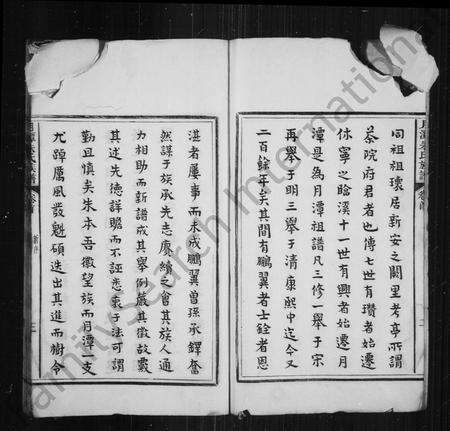 同祖祖瓌居新安之闕里考亭所謂
茶院府君者也傳七世有瓚者始遷
休寧之晗溪十一世有興者始遷月
潭是為月潭祖譜凡三修一舉于宋
再舉于明三舉于清康熙中迄今又
二百餘年矣其間有鵬翼者士銓者恩
湛者屢事而未成鵬翼曾孫承鐸奮
然謀于族承先志賡續之會其族人通
力相助而新譜成其舉例嚴其徵故覈
其述先德詳贍而不誣悉衷于法可謂
勤且慎矣朱本吾徽望族而月潭一支
尤踔厲風發魁碩迭出其進而樹令
月潭朱氏族譜 卷首
FamilySearch International